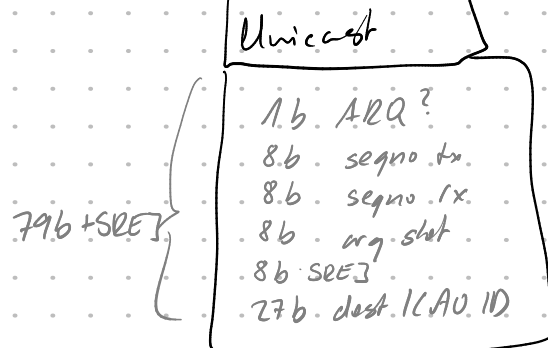 Unicast
1b ARQ?
8b seqno tx
8b seqno rx
8b arq stat
8b SREJ
27b dest ICAO ID
79b + SREJ